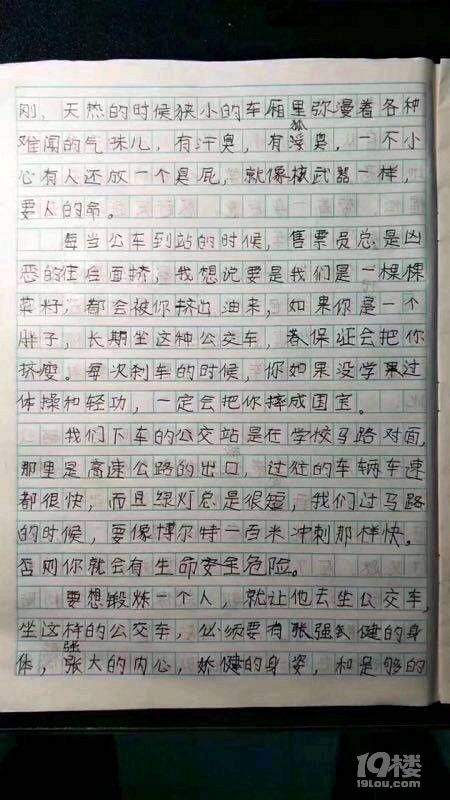 刚，天热的时候狭小的车厢里弥漫着各种
难闻的气味儿，有汗臭，有狐臭，一不小
心有人还放一个臭屁，就像核武器一样，
要人的命。
每当公车到站的时候，售票员总是凶
恶的往后面挤，我想说要是我们是一棵棵
菜籽，都会被你挤出油来，如果你是一个
胖子，长期坐这种公交车，我保证会把你
挤瘦。每次刹车的时候，你如果没学果过
体操和轻功，一定会把你摔成国宝。
我们下车的公交站是在学校马路对面，
那里是高速公路的出口，过往的车辆车速
都很快，而且绿灯总是很短，我们过马路
的时候，要像博尔特一百米冲刺那样快。
否则你就会有生命安全危险。
要想锻炼一个人，就让他去坐公交车，
坐这样的公交车，必须要有强健的身
体，强大的内心，娇健的身姿，和足够的
19楼
19lou.com